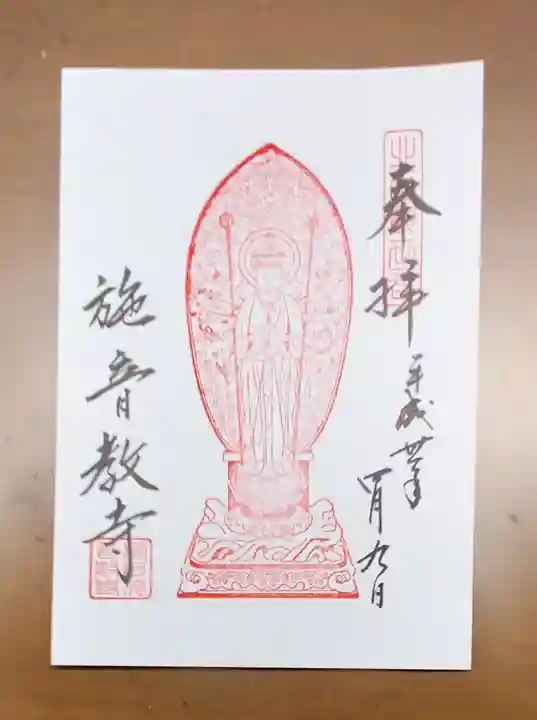 奉拝
平成卅一年
四月九日
施音教寺